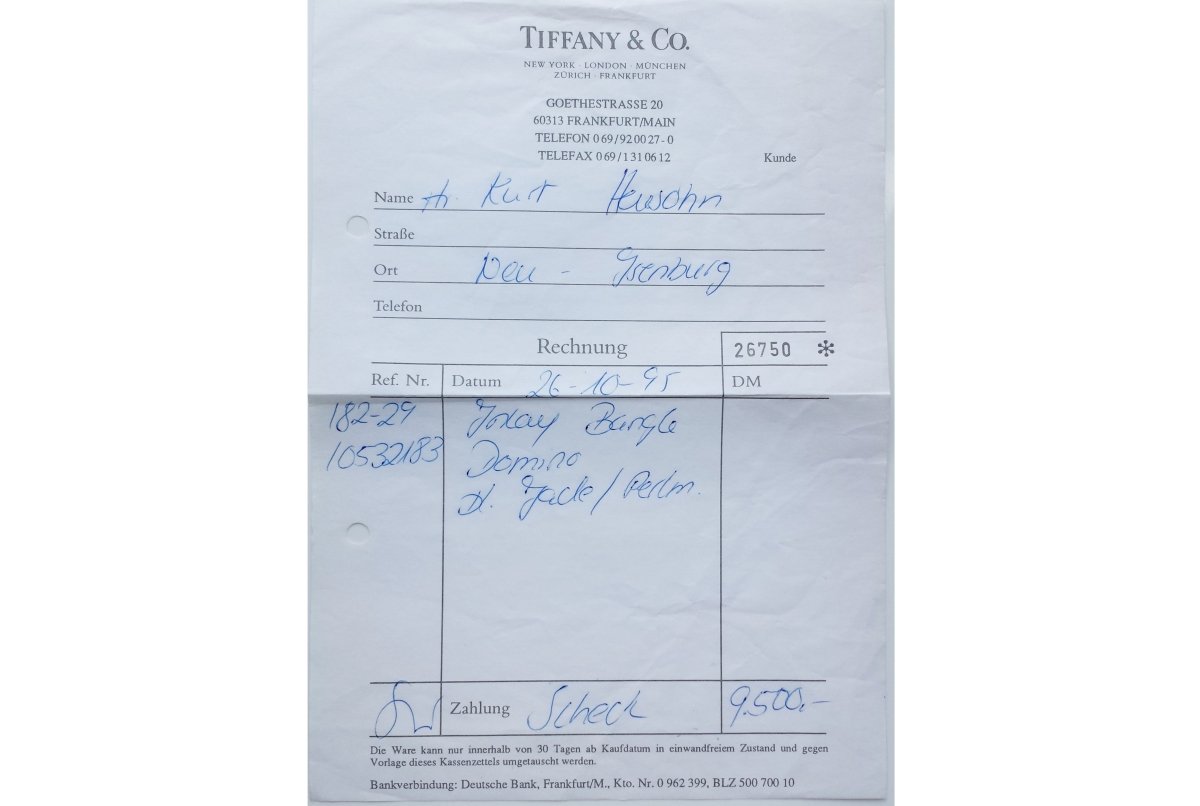 TIFFANY & CO.
NEW YORK · LONDON · MÜNCHEN
ZÜRICH · FRANKFURT
GOETHESTRASSE 20
60313 FRANKFURT/MAIN
TELEFON 069/920027-0
TELEFAX 069/1310612
Kunde
Name Hr. Kurt Heusohn
Straße
Ort Neu - Isenburg
Telefon
Rechnung 26750 *
Ref. Nr. Datum 26-10-95 DM
182-29 Inlay Bangle
10532183 Domino
Jade / Perlm.
Zahlung Scheck 9.500,-
Die Ware kann nur innerhalb von 30 Tagen ab Kaufdatum in einwandfreiem Zustand und gegen
Vorlage dieses Kassenzettels umgetauscht werden.
Bankverbindung: Deutsche Bank, Frankfurt/M., Kto. Nr. 0 962 399, BLZ 500 700 10